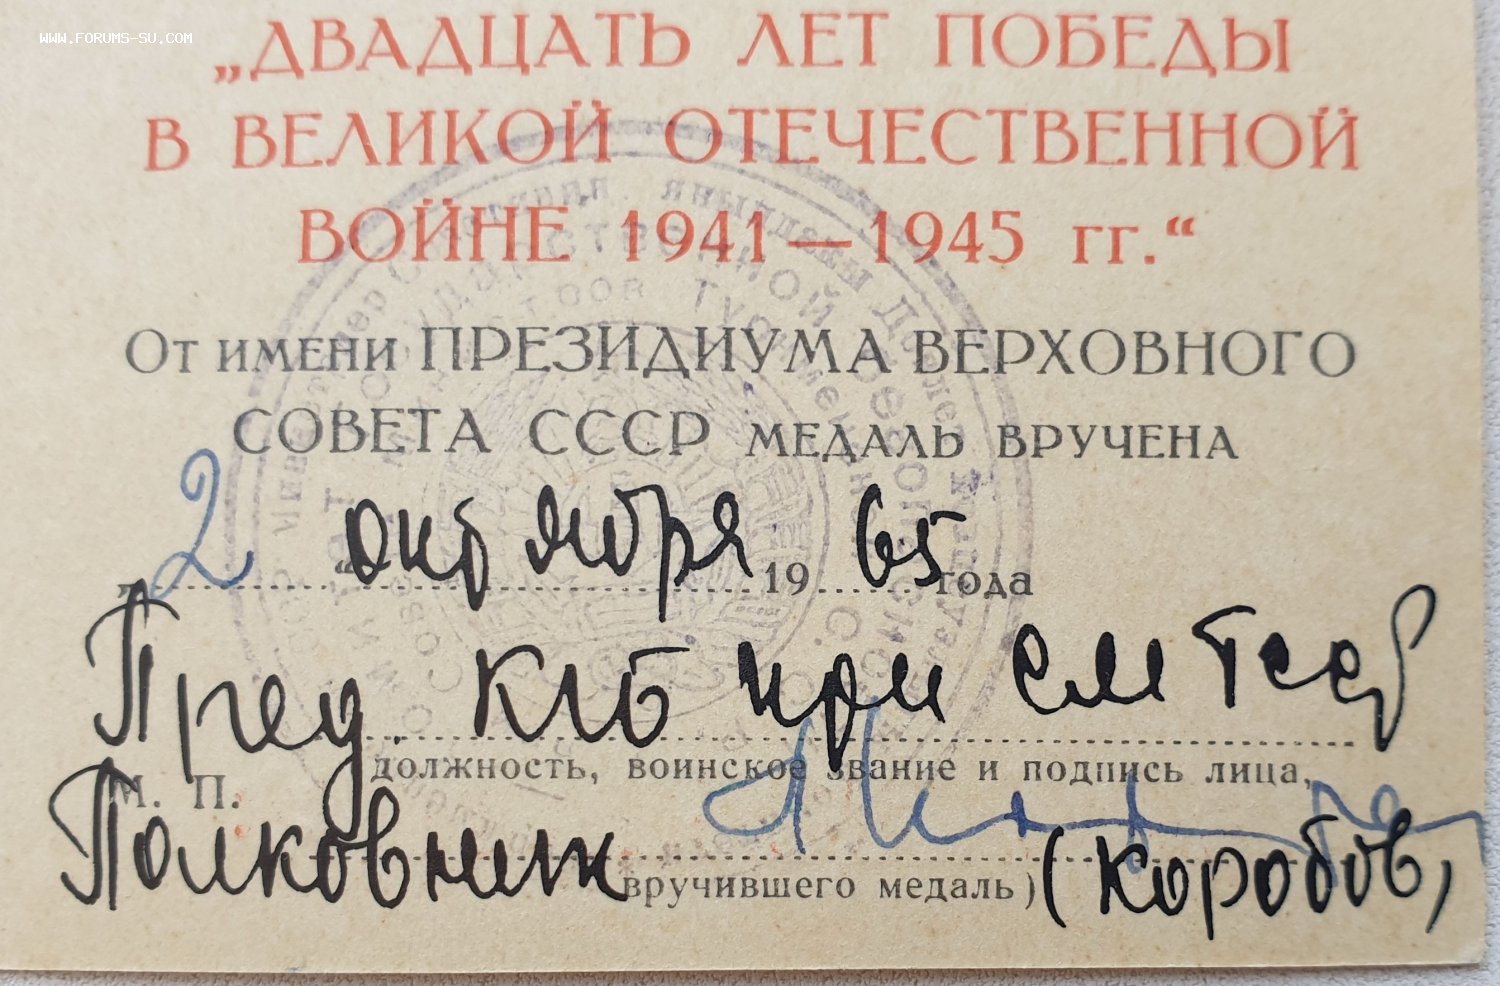 WWW.FORUMS-SU.COM
„ДВАДЦАТЬ ЛЕТ ПОБЕДЫ
В ВЕЛИКОЙ ОТЕЧЕСТВЕННОЙ
ВОЙНЕ 1941—1945 гг.“
От имени ПРЕЗИДИУМА ВЕРХОВНОГО
СОВЕТА СССР МЕДАЛЬ ВРУЧЕНА
„2“ октября 1965 года
Пред. КГБ при см Тсср
должность, воинское звание и подпись лица,
М. П.
Полковник (Коробов)
вручившего медаль)